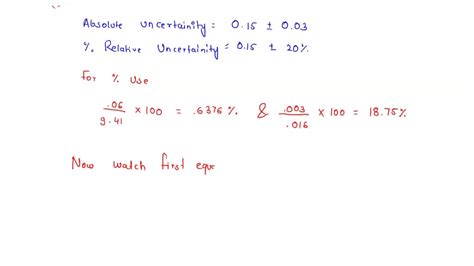 Absolute uncertainity = 0.15 ± 0.03
% Relative Uncertainity = 0.15 ± 20%
for % use
.06/9.41 × 100 = .6376 % & .003/.016 × 100 = 18.75%
Now watch first eque